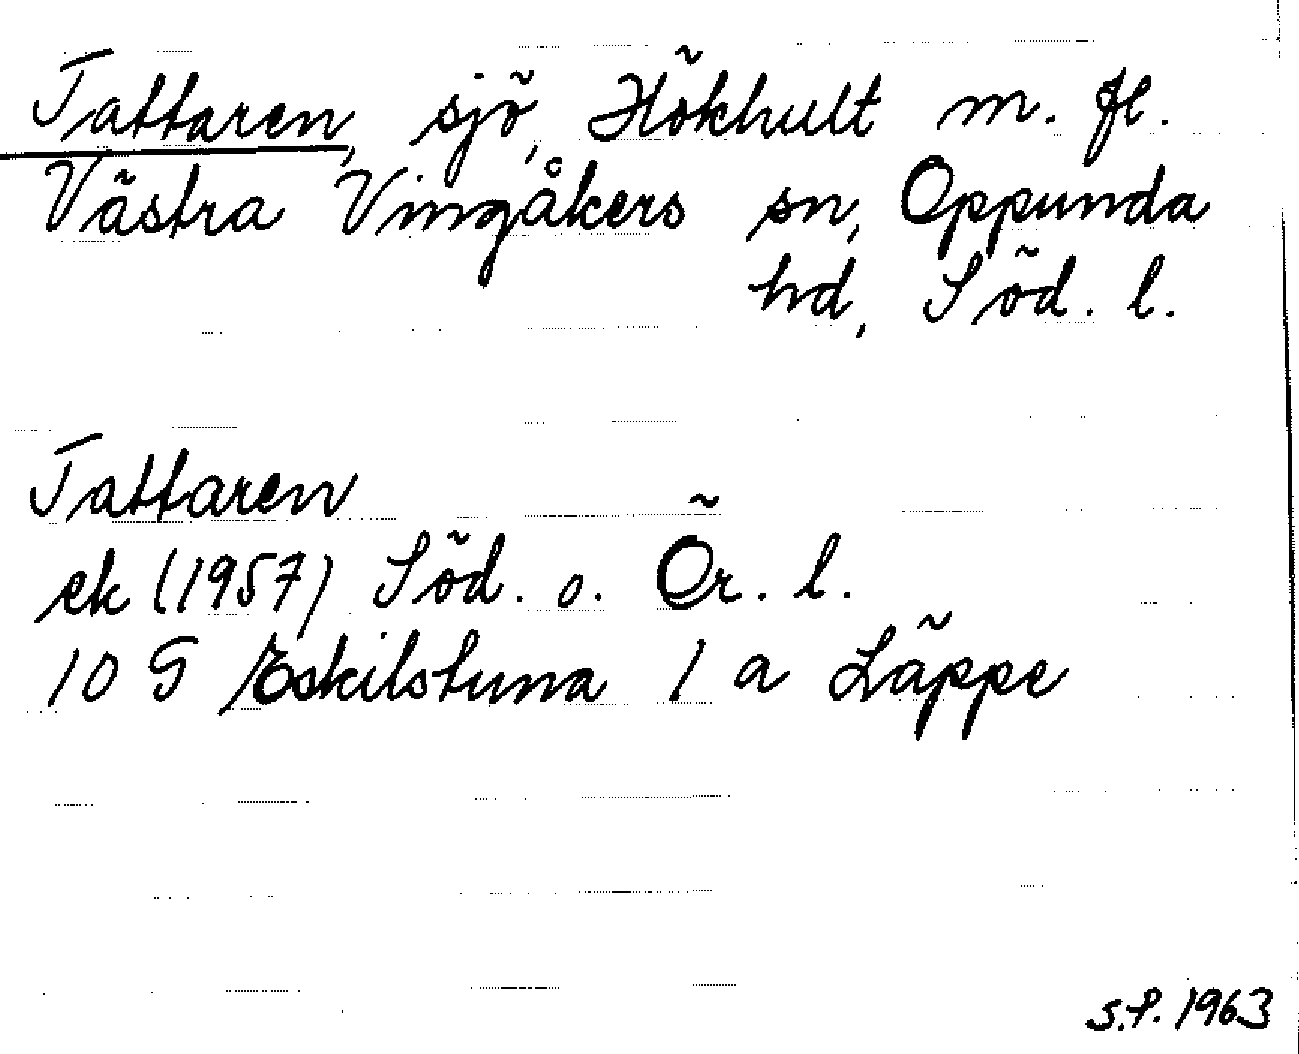 Tattaren, sjö, Hökhult m. fl.
Västra Vingåkers sn, Oppunda
hd, Söd. l.
Tattaren
ek (1957) Söd. o. Ör. l.
10 G Eskilstuna 1 a Läppe
S.P. 1963